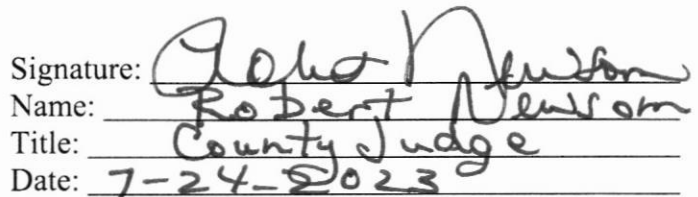 Signature: Robert Newsom
Name: Robert Newsom
Title: County Judge
Date: 7-24-2023